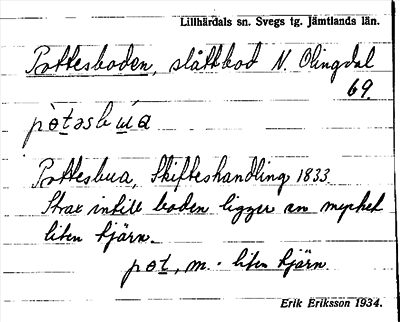 Lillhärdals sn. Svegs tg. Jämtlands län.
Pottesboden, slåttbod N. Olingdal
69.
pòtəsbùa
Pottesbua, Skifteshandling 1833.
Strax intill boden ligger en mycket
liten tjärn.
pot, m. - liten tjärn.
Erik Eriksson 1934.